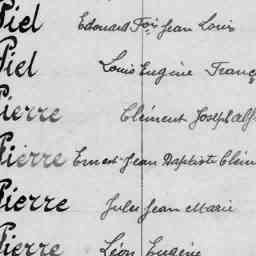 Piel Edouard Fois Jean Louis
Piel Louis Eugène Franç
Pierre Clément Joseph Alf
Pierre Ernest Jean Baptiste Clém
Pierre Jules Jean Marie
Pierre Léon Eugène